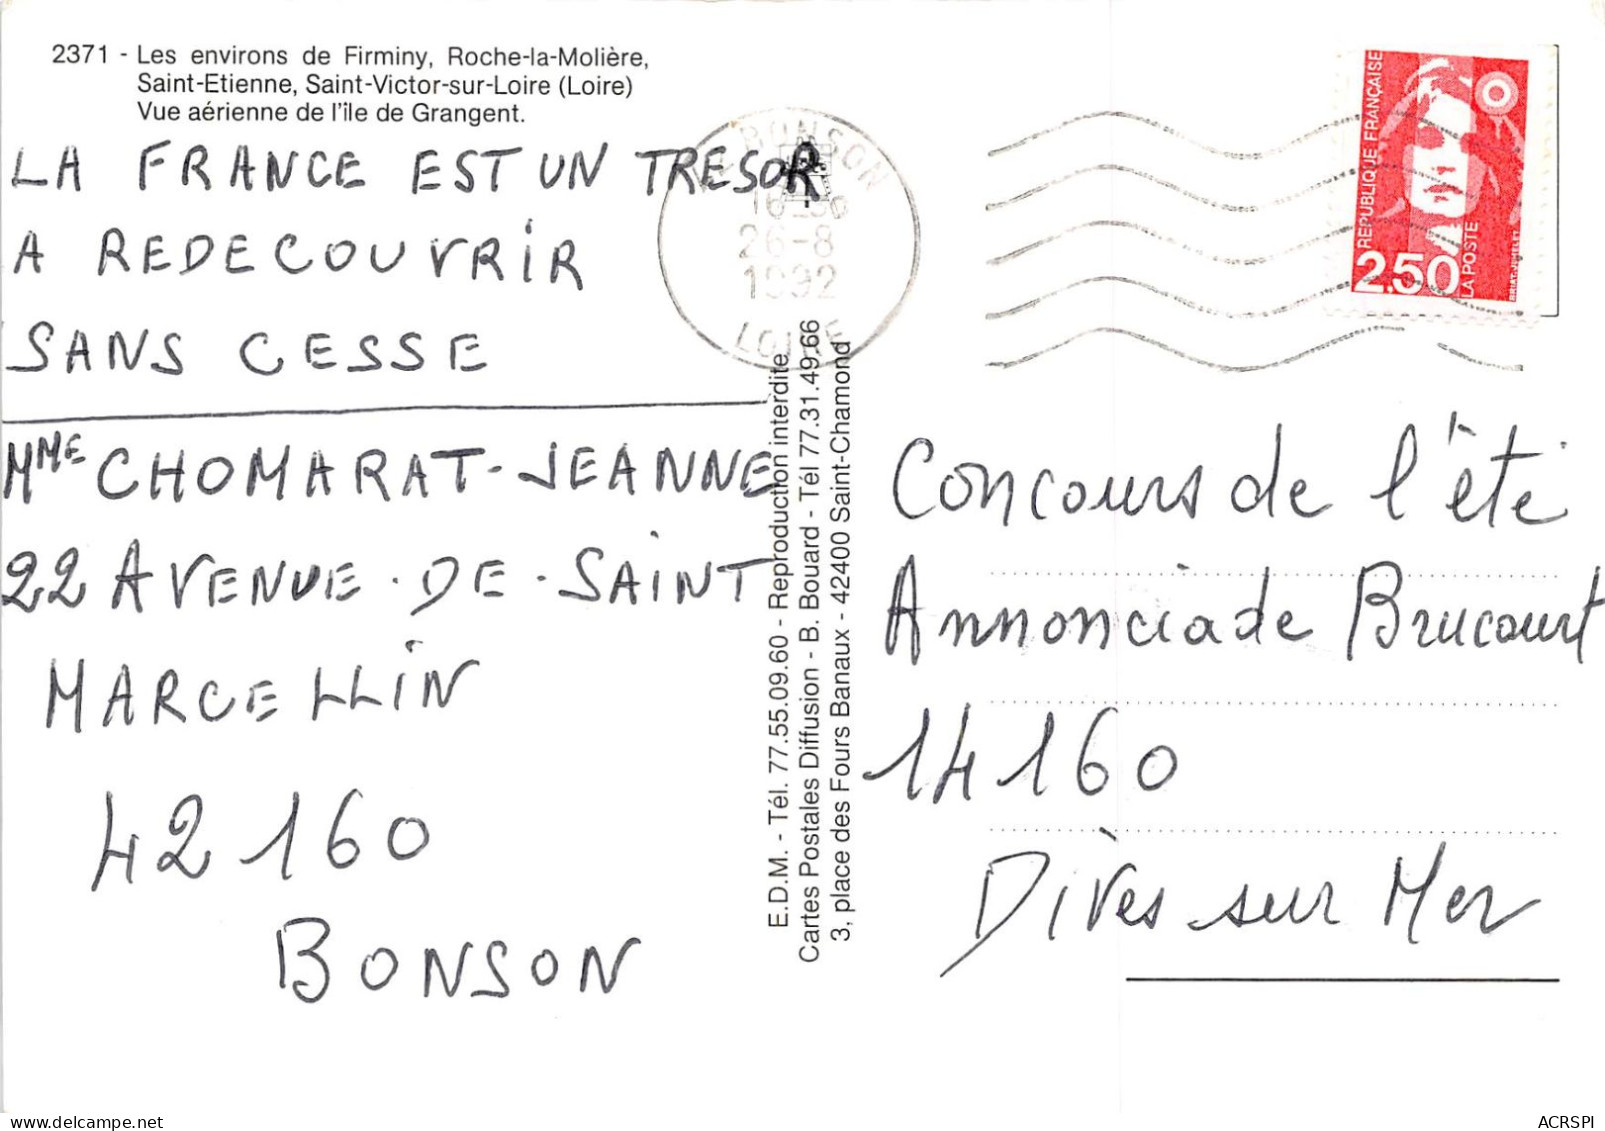 2371 - Les environs de Firminy, Roche-la-Molière,
Saint-Etienne, Saint-Victor-sur-Loire (Loire)
Vue aérienne de l'ile de Grangent.
LA FRANCE EST UN TRESOR
A REDECOUVRIR
SANS CESSE
MME CHOMARAT-JEANNE
22 AVENUE·DE·SAINT
MARCELLIN
42160
BONSON
BONSON
26-8
1992
LOIRE
E.D.M. - Tél. 77.55.09.60 - Reproduction interdite
Cartes Postales Diffusion - B. Bouard - Tél 77.31.49.66
3, place des Fours Banaux - 42400 Saint-Chamond
REPUBLIQUE FRANÇAISE
2.50
LA POSTE
BRIAT-JUMELET
Concours de l'été
Annonciade Brucourt
14160
Dives sur Mer
ACRSPI